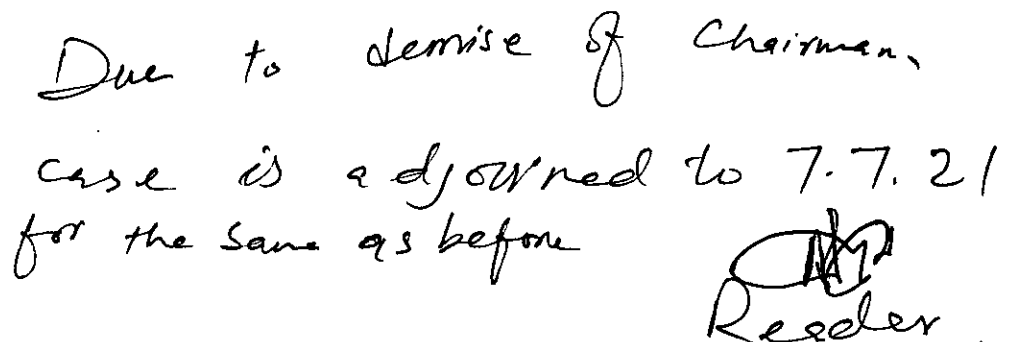 Due to demise of Chairman,
case is adjourned to 7.7.21
for the same as before
Reader